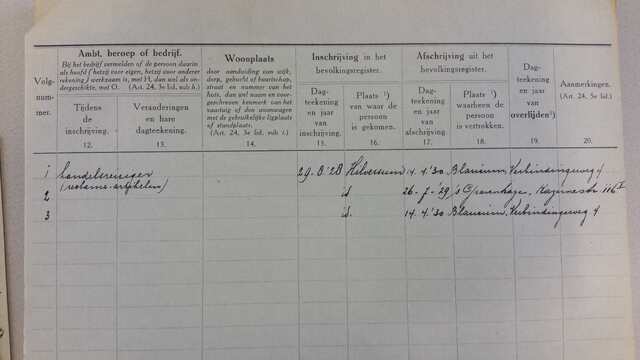 Volg-
num-
mer.
Ambt, beroep of bedrijf.
Bij het bedrijf vermelden of de persoon daarin
als hoofd (hetzij voor eigen, hetzij voor anderer
rekening) werkzaam is, met H, dan wel als on-
dergeschikte, met O. (Art. 24, 3e lid, sub h.)
Tijdens
de
inschrijving.
12.
Veranderingen
en hare
dagteekening.
13.
Woonplaats
door aanduiding van wijk,
dorp, gehucht of buurtschap,
straat en nummer van het
huis, dan wel naam en voor-
geschreven kenmerk van het
vaartuig of den woonwagen
met de gebruikelijke ligplaats
of standplaats. (Art. 24, 3e lid, sub i.)
14.
Inschrijving in het
bevolkingsregister.
Dag-
teekening
en jaar
van
inschrijving.
15.
Plaats ¹)
van waar de
persoon
is gekomen.
16.
Afschrijving uit het
bevolkingsregister.
Dag-
teekening
en jaar
van
afschrijving
17.
Plaats ¹)
waarheen de
persoon
is vertrokken.
18.
Dag-
teekening
en jaar
van
overlijden ²)
19.
Aanmerkingen.
(Art. 24, 5e lid.)
20.
1 handelsreiziger 29.8.'28 Hilversum 14.4.'30 Blaricum, Verbindingsweg 4
(reclame-artikelen)
2 id. 26-7-'29 's Gravenhage, 116
3 id. 14.4.'30 Blaricum, Verbindingsweg 4